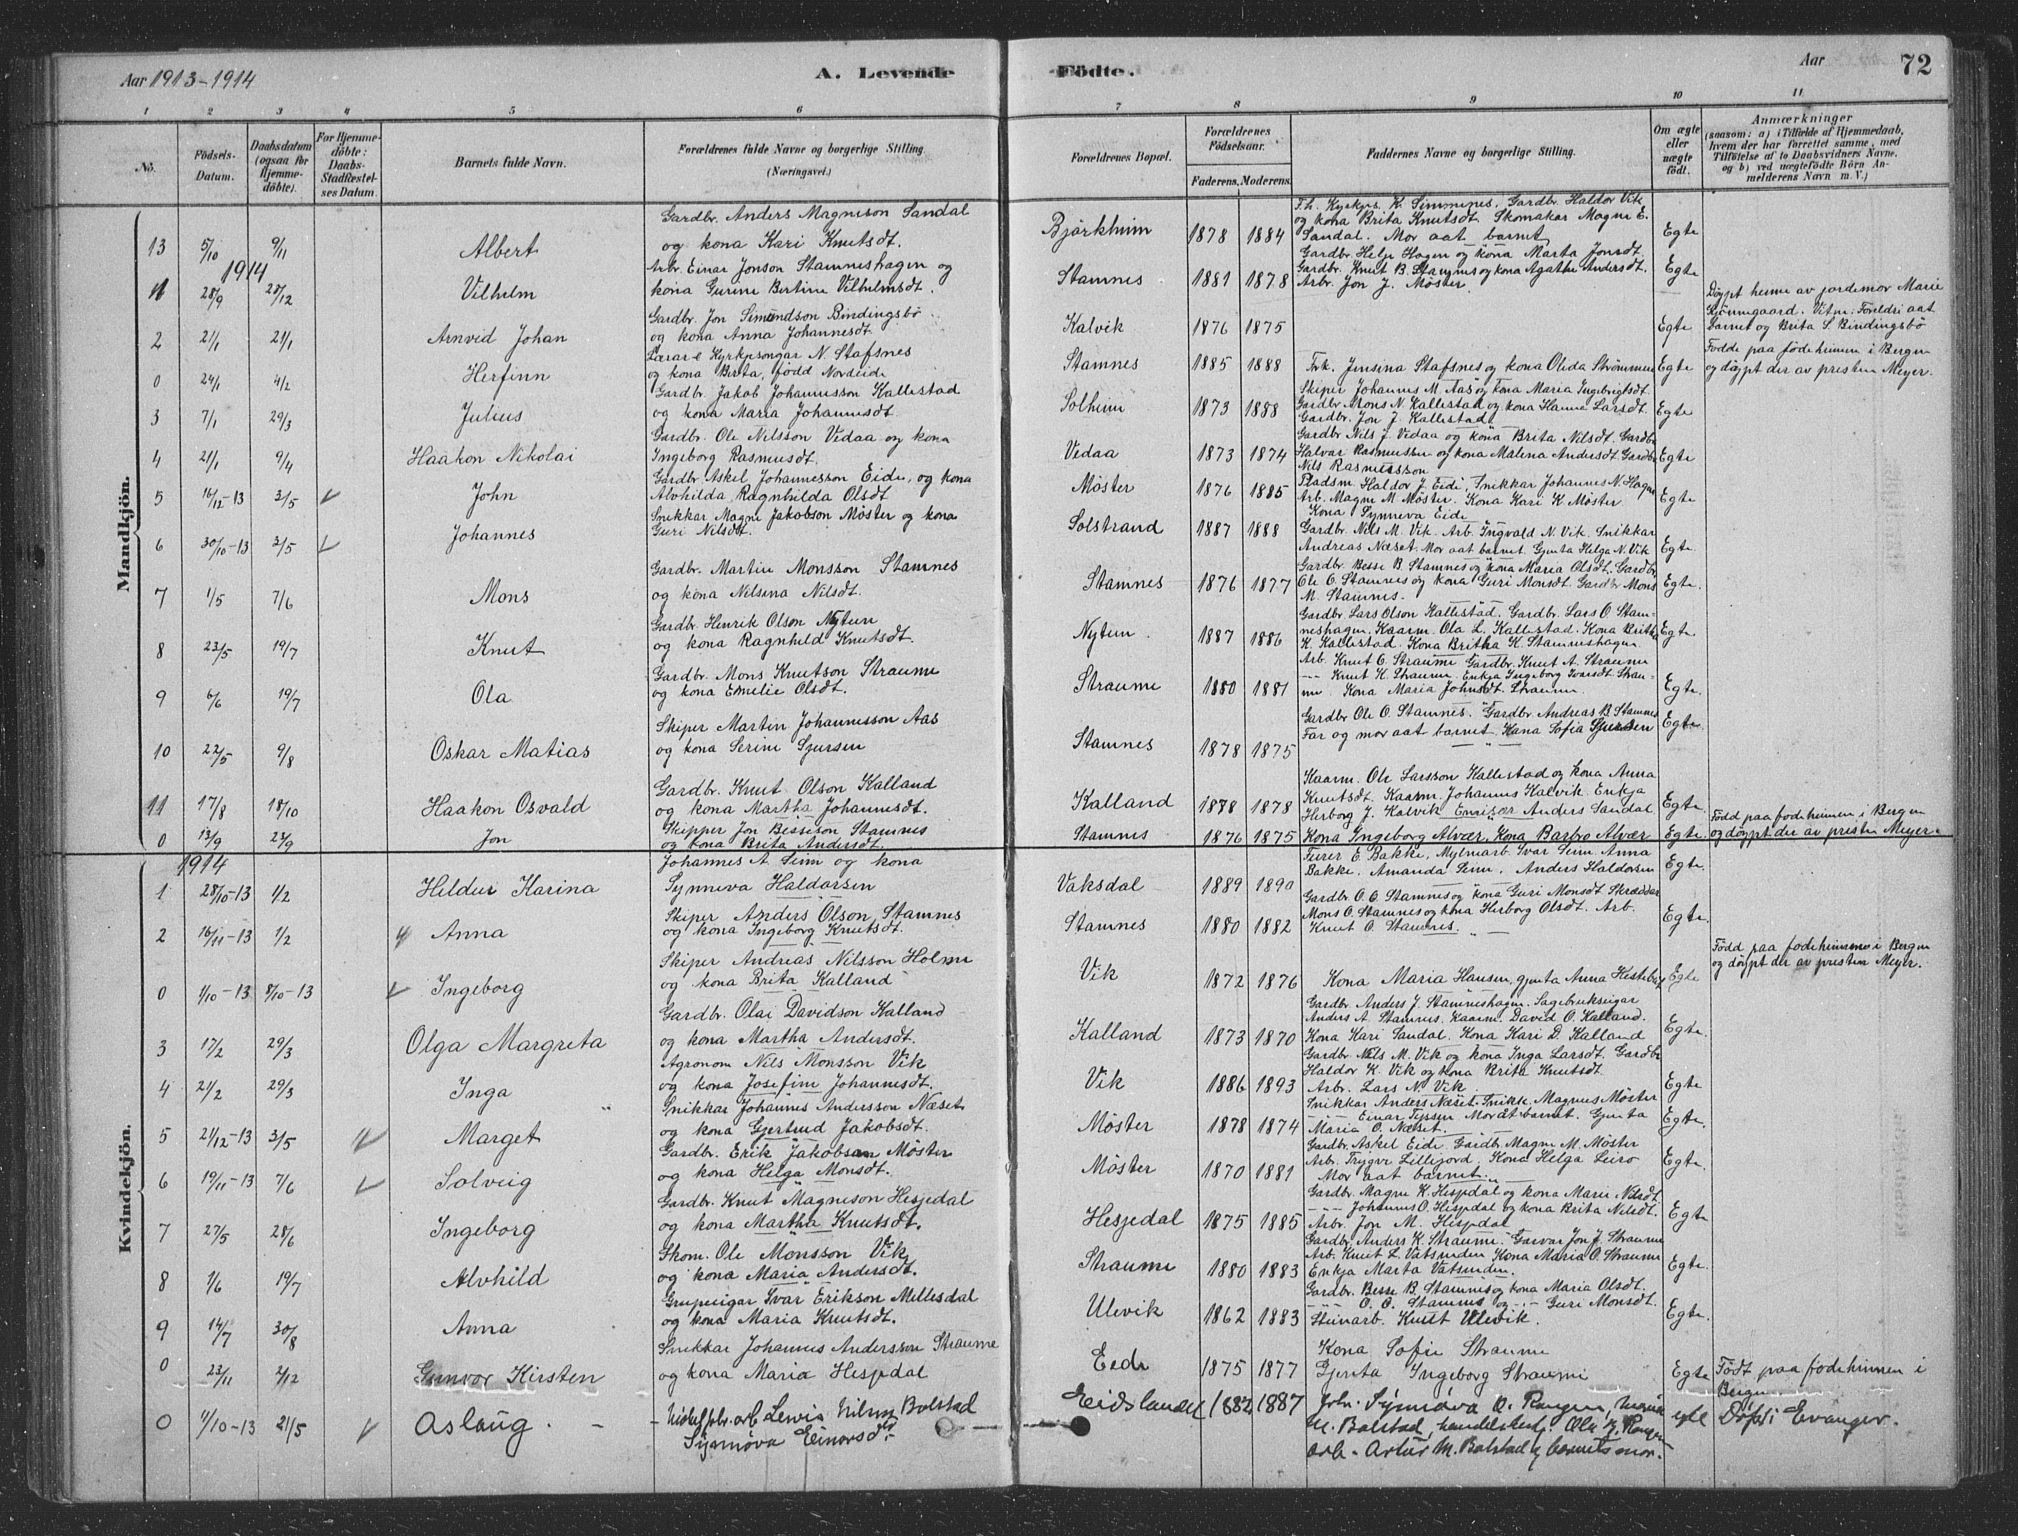 Aar 1913-1914 A. Levende Födte. Aar 72
1 2 3 4 5 6 7 8 9 10 11
No. Födsels-Datum. Daabsdatum (ogsaa for Hjemmedöbte). For Hjemmedöbte: Daabs-Stadfæstelses Datum. Barnets fulde Navn. Forældrenes fulde Navne og borgerlige Stilling (Næringsvei.) Forældrenes Bopæl. Forældrenes Födselsaar. Faderens. Moderens. Faddernes Navne og borgerlige Stilling. Om ægte eller uægte födt. Anmærkninger (saasom: a) i Tilfælde af Hjemmedaab, hvem der har forrettet samme, med Tilföielse af to Daabsvidners Navne, og b) ved uægtefödte Börn Anmelderens Navn m. V.)
Mandkjön.
13 5/10 9/11 Albert Gardbr. Anders Magneson Sandal og kona Kari Knutsdt. Bjørkheim 1878 1884 F.h. Kyrkjes. K. Simmenes, Gardbr. Haldor Vik og kona Brita Knutsdt. Skomakar Magne E. Sandal. Mor aat barnet Egte
1914
1 28/9 28/12 Vilhelm Arb. Einar Jonson Stamneshagen og kona Gurine Bertine Vilhelmsdt. Stamnes 1881 1878 Gardbr. Helje Hagen og kona Marta Jonsdt. Gardbr. Knut B. Stamnes og kona Agathe Andersdt. Arbr. Jon J. Møster. Egte
2 2/1 21/1 Arnvid Johan Gardbr. Jon Simundson Bindingsbø og kona Anna Johannesdt. Kalvik 1876 1875 Egte Døypt heime av jordemor Marie Vitne: Foreldri aat barnet og Brita S. Bindingsbø
0 24/1 4/2 Herfinn Lærar & Kyrkjesongar N. Stafsnes og kona Berta, fødd Nordeide Stamnes 1885 1888 Frk. Jensina Stafsnes og kona Olida Strømmen Egte Fødde paa fødeheimen i Bergen og døypt der av presten Meyer.
3 7/1 29/3 Julius Gardbr. Jakob Johannesson Kallestad og kona Maria Johannesdt. Solheim 1873 1888 Skiper Johannes M. Aas og kona Maria Ingebrigtsdt. Gardbr. Mons N. Kallestad og kona Hanne Larsdt. Gardbr. Jon J. Kallestad Egte
4 21/1 9/4 Haakon Nikolai Gardbr. Ole Nilsson Vedaa og kona Ingeborg Rasmusdt. Vedaa 1873 1874 Gardbr Nils J. Vedaa og kona Brita Nilsdt. Gardbr Halvar Rasmussen og kona Malena Andersdt Gardbr Nils Rasmusson Egte
5 16/12-13 3/5 John Gardbr Askel Johannesson Eide, og kona Alvhilda Ragnhilda Olsdt Møster 1876 1885 Pladsm. Haldor J. Eide, Snikkar Johannes N. Hagen Arb. Magne M. Møster. Kona Kari K. Møster. Kona Synneva Eide Egte
6 30/10-13 3/5 Johannes Snikkar Magne Jakobson Møster og kona Guri Nilsdt. Solstrand 1887 1888 Gardbr. Nils M. Vik. Arb. Ingvald N. Vik. Snikkar Andreas Næset. Mor aat barnet. Gjenta Helga N. Vik Egte
7 1/5 7/6 Mons Gardbr. Martin Monsson Stamnes og kona Nilsina Nilsdt. Stamnes 1876 1877 Gardbr. Besse B. Stamnes og kona Maria Olsdt. Gardbr Ole O. Stamnes og kona Guri Monsdt Gardbr Mons M. Stamnes. Egte
8 23/5 19/7 Knut Gardbr. Henrik Olson Nytun og kona Ragnhild Knutsdt. Nytun. 1887 1886 Gardbr. Lars Olson Kallestad. Gardbr. Lars O. Stamneshagen. Kaarm. Ola L. Kallestad. Kona Britha K. Kallestad. Kona Britha K. Stamneshagen Egte
9 6/6 19/7 Ola Gardbr. Mons Knutson Straume og kona Emelie Olsdt. Straume 1880 1881 Arb. Knut O. Straume Gardbr. Knut A. Straume Knut K. Straume. Enkja Ingeborg Ivarsdt. Straume Kona Maria Johnsdt. Straume Egte
10 22/5 9/8 Oskar Matias Skiper Martin Johannesson Aas og kona Serine Sjursen Stamnes 1878 1875 Gardbr Ole O. Stamnes. Gardbr Andreas B. Stamnes Far og mor aat barnet. Kona Sofia Sjursen Egte
11 17/8 18/10 Haakon Osvald Gardbr. Knut Olson Kalland og kona Martha Johannesdt. Kalland 1878 1878 Kaarm. Ole Larsson Kallestad og kona Anna Knutsdt. Kaarm Johannes Kalvik. Enkja Herborg J. Kalvik Emisær Anders Sandal Egte
0 13/9 23/9 Jon Skipper Jon Besseson Stamnes og kona Brita Andersdt. Stamnes 1876 1875 Kona Ingeborg Alvær, Kona Barbro Alvær Egte Fødd paa fødeheimen i Bergen og døypt der av presten Meyer.
1914
Kvindekjön.
1 28/10-13 1/2 Heldur Karina Johannes A. Seim og kona Synneva Haldorsen Vaksdal 1889 1890 E. Bakke, Mylnarb. Ivar Seim. Anna Bakke, Amanda Seim. Anders Haldorsen Egte
2 16/11-13 1/2 Anna Skiper Anders Olson Stamnes og kona Ingeborg Knutsdt. Stamnes 1880 1882 Gardbr O. O. Stamnes og kona Guri Monsdt Skræddar Mons O. Stamnes og kona Herborg Olsdt. Arb. Knut O. Stamnes. Egte
0 1/10-13 8/10-13 Ingeborg Skiper Andreas Nilsson Holme og kona Brita Kalland Vik 1872 1876 Kona Maria Hansen, gjenta Anna Egte Fødd paa fødeheimen i Bergen og døypt der av presten Meyer.
3 17/2 29/3 Olga Margreta Gardbr. Olai Davidson Kalland og kona Martha Andersdt. Kalland 1873 1870 Gardbr Anders J. Stamneshagen. Sagebrukseigar Anders A. Stamnes. Kaarm. David O. Kalland. Kona Kari Sandal. Kona Kari D. Kalland Egte
4 21/2 29/3 Inga Agronom Nils Monsson Vik og kona Josefine Johannesdt. Vik 1886 1893 Gardbr Nils M. Vik og kona Inga Larsdt. Gardbr Haldor K. Vik og kona Brita Knutsdt Arbr. Lars N. Vik Egte
5 21/12-13 3/5 Marget Snikkar Johannes Andersson Næset og kona Gjertrud Jakobsdt. Møster 1878 1874 Snikkar Anders Næset. Snikk. Magnus Møster Einar Tepsen Mor åt barnet. Gjenta Maria O. Næset. Egte
6 19/11-13 7/6 Solveig Gardbr. Erik Jakobsen Møster og kona Helga Monsdt. Møster 1870 1881 Gardbr. Askel Eide Gardbr. Magne M. Møster Arb. Trygve Lillejord. Kona Helga Leiro Mor aat barnet Egte
7 27/5 28/6 Ingeborg Gardbr. Knut Magneson Hesjedal og kona Martha Knutsdt. Hesjedal 1875 1885 Gardbr. Magne K. Hesjedal og kona Marie Nilsdt. Johannes O. Hesjedal og kona Brita Nilsdt. Arbr. Jon M. Hesjedal Egte
8 1/6 19/7 Alvhild Skom. Ole Monsson Vik og kona Maria Andersdt. Straume 1880 1883 Gardbr. Anders K. Straume. Garvar Jon J. Straume Arb. Knut L. Vatsenden Kona Maria O. Straume Enkja Marta Vatsenden. Egte
9 14/7 30/8 Anna Grupeeigar Ivar Erikson Mellesdal og kona Maria Knutsdt. Ulevik 1862 1883 Gardbr. Besse B. Stamnes og kona Maria Olsdt. O. O. Stamnes og Guri Monsdt. Steinarb. Knut Ulevik. Egte
0 23/11 2/12 Gunvor Kirsten Snikkar Johannes Andersson Straume og kona Maria Hesjedal Eide 1875 1877 Kona Sofie Straume Gjenta Ingeborg Straume Egte Født paa fødeheimen i Bergen
0 4/10-13 21/5 Aslaug Lewis Nilsen Bolstad Synnøva Einarsdtr Eidslandet 1882 1887 Synnøva O. M. Bolstad, Ole K. arb. Artur M. Bolstad og barnets mor. egte Døpt i Evanger.